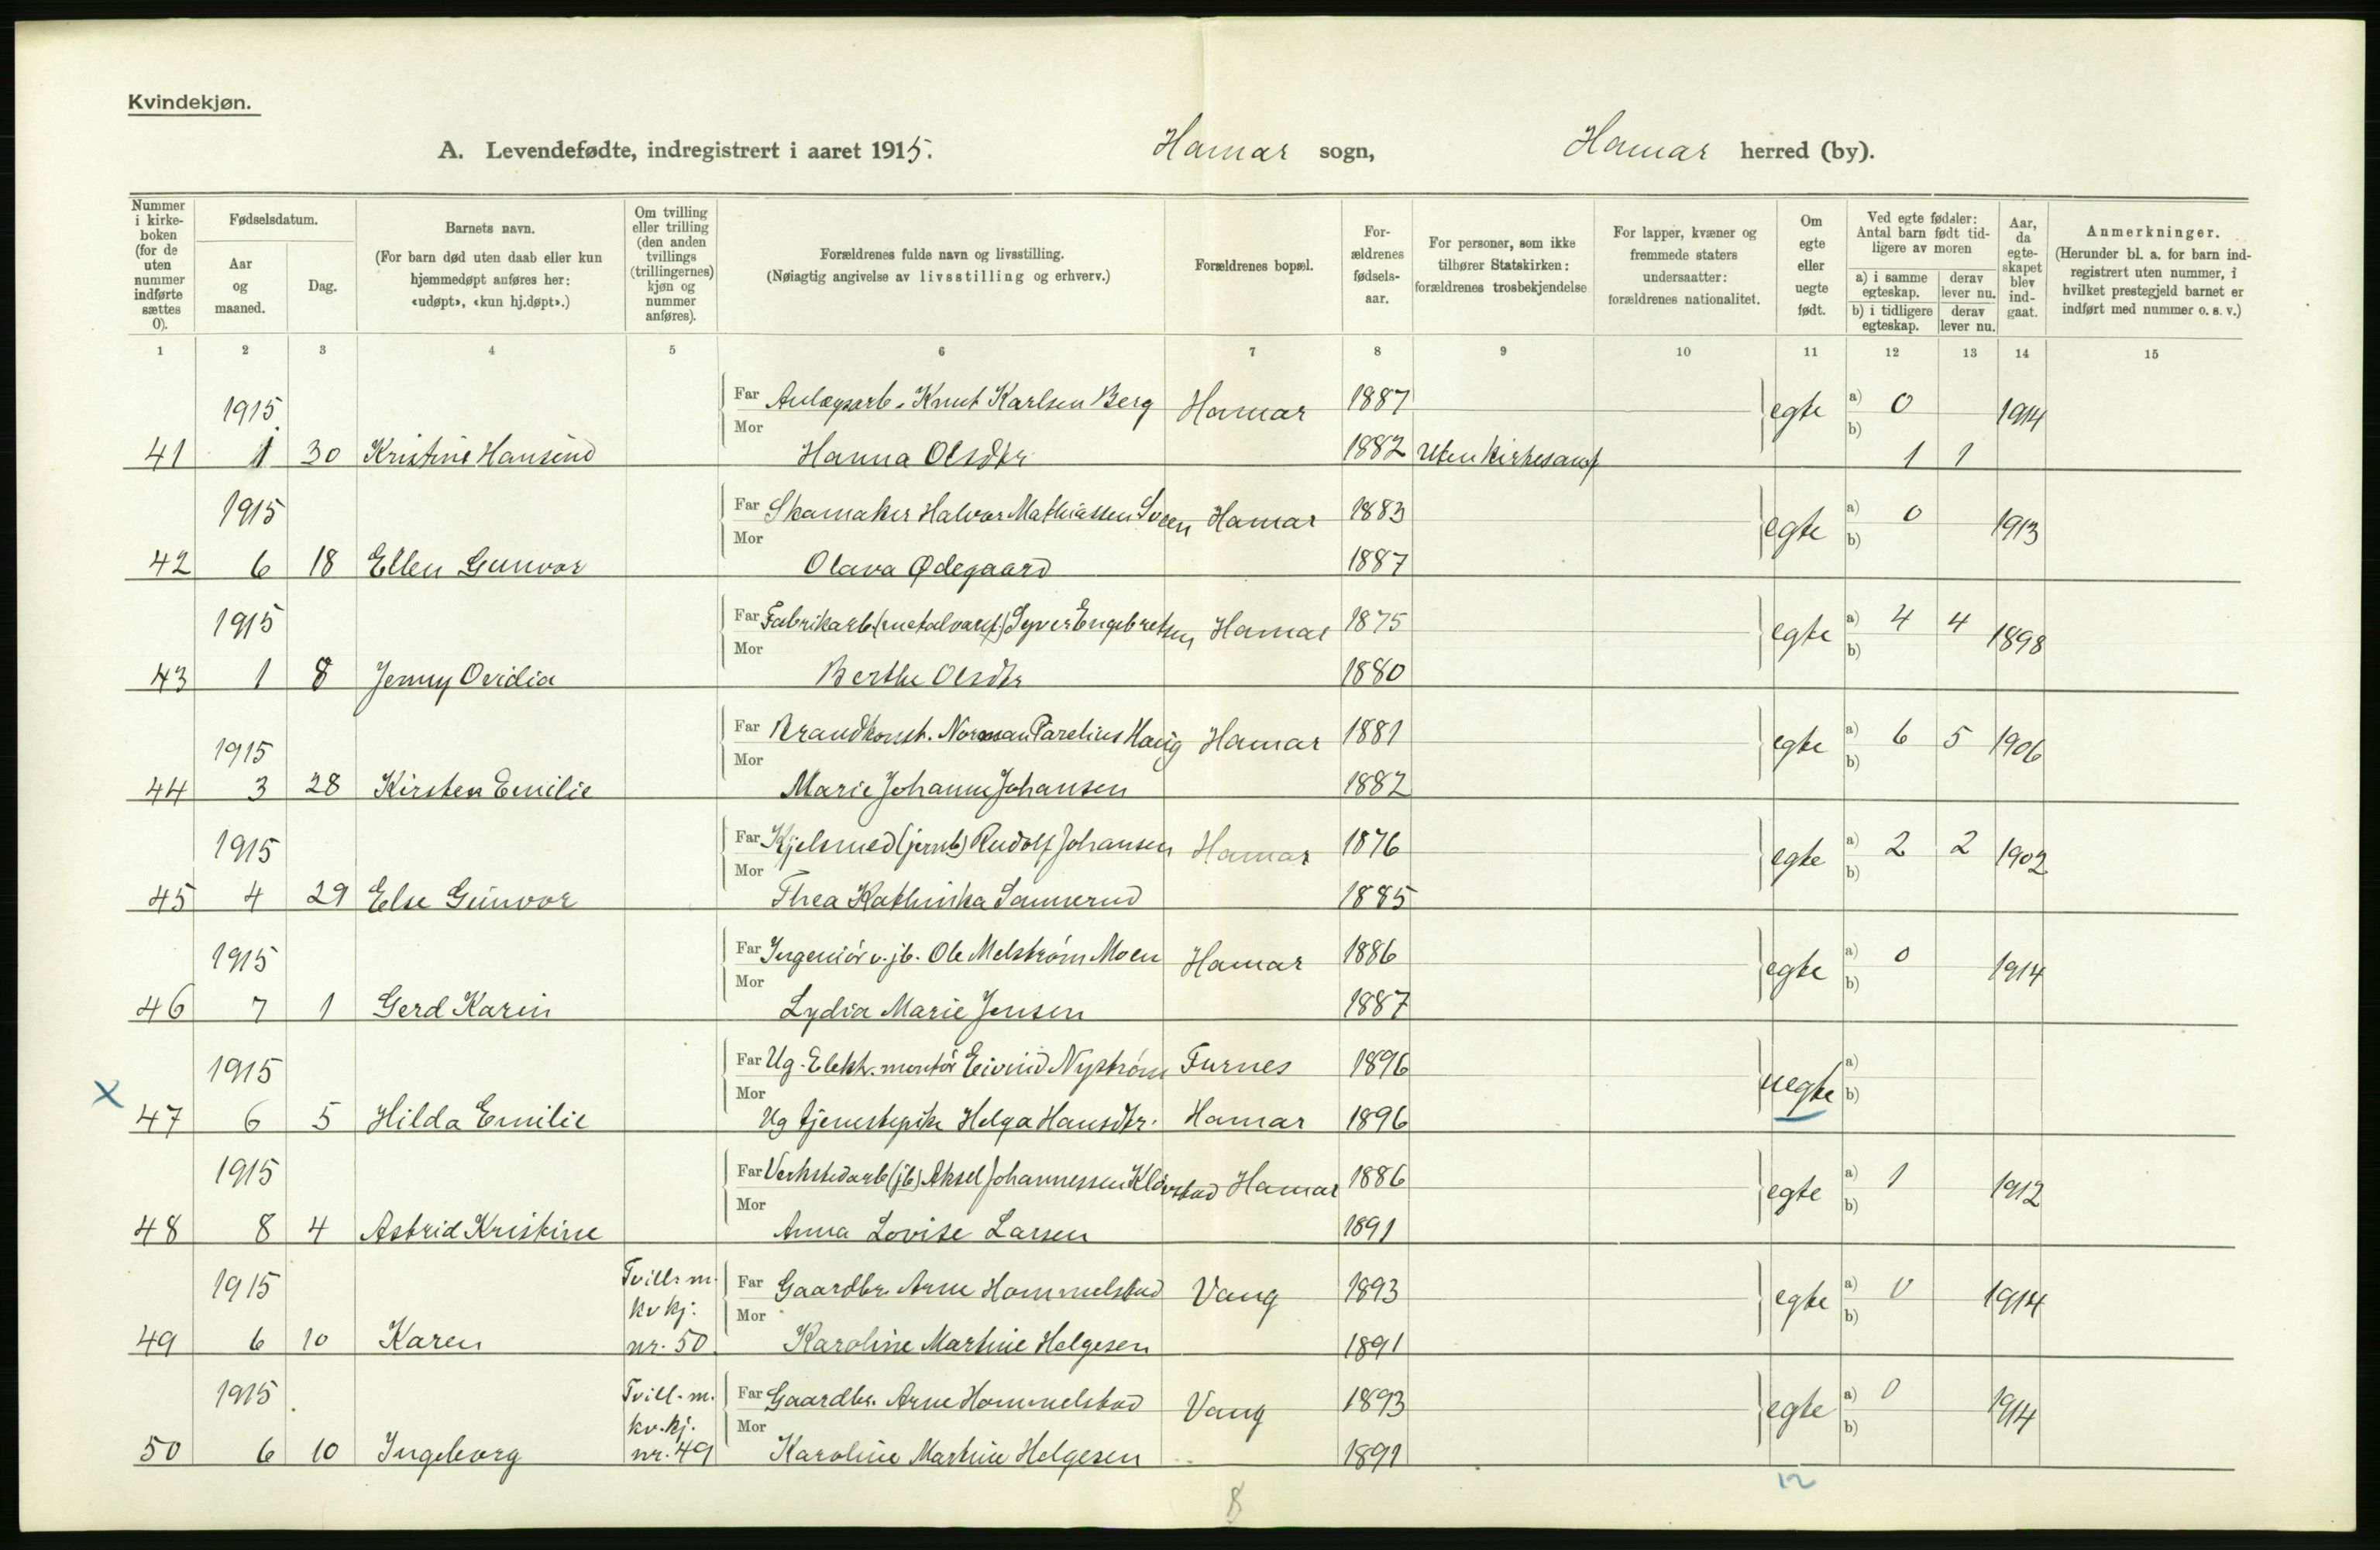 Kvindekjøn.
A. Levendefødte, indregistrert i aaret 1915. Hamar sogn, Hamar herred (by).
Nummer i kirkeboken (for de uten nummer indførte sættes 0).
Fødselsdatum.
Aar og maaned.
Dag.
Barnets navn.
(For barn død uten daab eller kun hjemmedøpt anføres her: «udøpt», «kun hj.døpt».)
Om tvilling eller trilling (den anden tvillings (trillingernes) kjøn og nummer anføres).
Forældrenes fulde navn og livsstilling.
(Nøiagtig angivelse av livsstilling og erhverv.)
Forældrenes bopæl.
Forældrenes fødselsaar.
For personer, som ikke tilhører Statskirken: forældrenes trosbekjendelse
For lapper, kvæner og fremmede staters undersaatter: forældrenes nationalitet.
Om egte eller uegte født.
Ved egte fødsler: Antal barn født tidligere av moren
a) i samme egteskap.
derav lever nu.
b) i tidligere egteskap.
derav lever nu.
Aar, da egteskapet blev indgaat.
Anmerkninger.
(Herunder bl. a. for barn indregistrert uten nummer, i hvilket prestegjeld barnet er indført med nummer o. s. v.)
1 2 3 4 5 6 7 8 9 10 11 12 13 14 15
1915 Far Anlægsarb. Knut Karlsen Berg Hamar 1887 egte a) 0 1914
41 1 30 Kristine Hansine Mor Hanna Olsdtr 1882 Uten kirkesamf b) 1 1
1915 Far Skomaker Halvor Mathiassen Sveen Hamar 1883 egte a) 0 1913
42 6 18 Ellen Gunvor Mor Olava Ødegaard 1887 b)
1915 Far Fabrikarb. (metalvaref.) Syver Engebretsen Hamar 1875 egte a) 4 4 1898
43 1 8 Jenny Ovidia Mor Berthe Olsdtr 1880 b)
1915 Far Brandkonst. Norman Parelius Haug Hamar 1881 egte a) 6 5 1906
44 3 28 Kirsten Emilie Mor Marie Johanne Johansen 1882 b)
1915 Far Kjelsmed (jernb) Rudolf Johansen Hamar 1876 egte a) 2 2 1902
45 4 29 Else Gunvor Mor Thea Kathinka Sannerud 1885 b)
1915 Far Ingeniør v. jb. Ole Melstrøm Moen Hamar 1886 egte a) 0 1914
46 7 1 Gerd Karin Mor Lydia Marie Jensen 1887 b)
1915 Far Ug. Elektr. montör Eivind Nystrøm Furnes 1896 uegte a)
x 47 6 5 Hilda Emilie Mor Ug tjenestepike Helga Hansdtr. Hamar 1896 b)
1915 Far Verkstedarb (jb) Aksel Johannessen Kløvstad Hamar 1886 egte a) 1 1912
48 8 4 Astrid Kristine Mor Anna Lovise Larsen 1891 b)
1915 Tvill. m. kv kj. Far Gaardbr. Arne Hommelstad Vang 1893 egte a) 0 1914
49 6 10 Karen nr. 50 Mor Karoline Martine Helgesen 1891 b)
1915 Tvill. m. kv. kj. Far Gaardbr. Arne Hommelstad Vang 1893 egte a) 0 1914
50 6 10 Ingeborg nr. 49 Mor Karoline Martine Helgesen 1891 b)
8 12